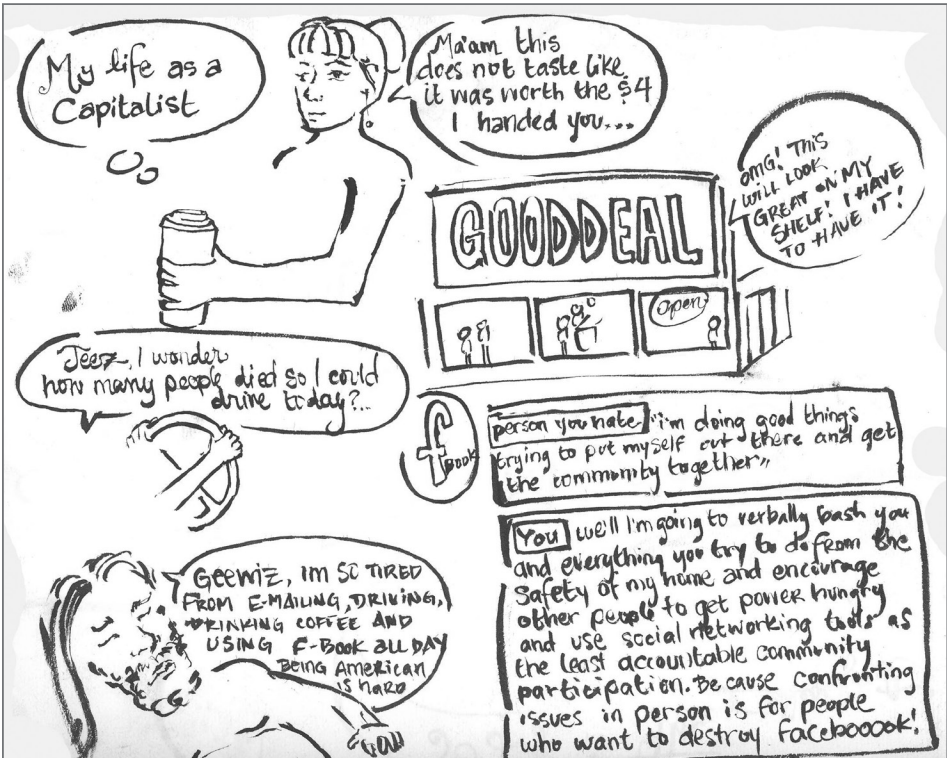 My life as a
Capitalist
Ma'am this
does not taste like
it was worth the $4
I handed you...
OMG! THIS
WILL LOOK
GREAT ON MY
SHELF! I HAVE
TO HAVE IT!
GOODDEAL
Open
Jeez, I wonder
how many people died so I could
drive today?...
f
BOOK
person you hate "i'm doing good things
trying to put myself out there and get
the community together"
You we'll I'm going to verbally bash you
and everything you try to do from the
safety of my home and encourage
other people to get power hungry
and use social networking tools as
the least accountable community
participation. Because confronting
issues in person is for people
who want to destroy faceboook!
GEEWIZ, IM SO TIRED
FROM E-MAILING, DRIVING,
DRINKING COFFEE AND
USING F-BOOK ALL DAY
BEING American
IS HARD